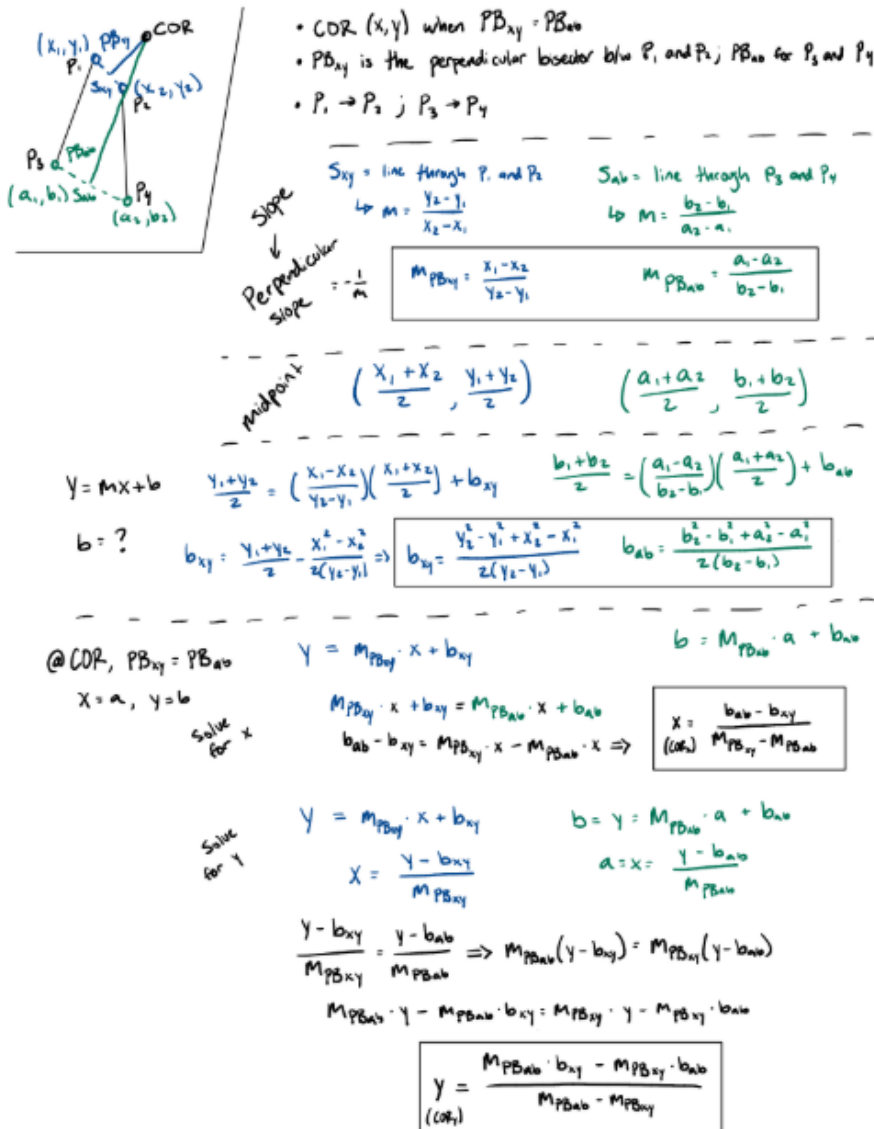 COR
(x₁, y₁) PBxy
P₁
Sxy (x₂, y₂)
P₂
P₃ PBab
(a₁, b₁) Sab P₄
(a₂, b₂)
• COR (x,y) when PBxy = PBab
• PBxy is the perpendicular bisector b/w P₁ and P₂; PBab for P₃ and P₄
• P₁ → P₂ ; P₃ → P₄
Sxy = line through P₁ and P₂
↳ m = (y₂ - y₁)/(x₂ - x₁)
Sab = line through P₃ and P₄
↳ m = (b₂ - b₁)/(a₂ - a₁)
Slope
↓
Perpendicular slope = -1/m
mPBxy = (x₁ - x₂)/(y₂ - y₁)
mPBab = (a₁ - a₂)/(b₂ - b₁)
midpoint
((x₁ + x₂)/2 , (y₁ + y₂)/2)
((a₁ + a₂)/2 , (b₁ + b₂)/2)
y = mx + b
b = ?
(y₁ + y₂)/2 = ((x₁ - x₂)/(y₂ - y₁))((x₁ + x₂)/2) + bxy
(b₁ + b₂)/2 = ((a₁ - a₂)/(b₂ - b₁))((a₁ + a₂)/2) + bab
bxy = (y₁ + y₂)/2 - (x₁² - x₂²)/(2(y₂ - y₁)) ⇒ bxy = (y₂² - y₁² + x₂² - x₁²)/(2(y₂ - y₁))
bab = (b₂² - b₁² + a₂² - a₁²)/(2(b₂ - b₁))
@ COR, PBxy = PBab
x = a, y = b
y = mPBxy · x + bxy
b = mPBab · a + bab
Solve for x
mPBxy · x + bxy = mPBab · x + bab
bab - bxy = mPBxy · x - mPBab · x ⇒ x (CORx) = (bab - bxy)/(mPBxy - mPBab)
Solve for y
y = mPBxy · x + bxy
b = y = mPBab · a + bab
x = (y - bxy)/mPBxy
a = x = (y - bab)/mPBab
(y - bxy)/mPBxy = (y - bab)/mPBab ⇒ mPBab(y - bxy) = mPBxy(y - bab)
mPBab · y - mPBab · bxy = mPBxy · y - mPBxy · bab
y (CORy) = (mPBab · bxy - mPBxy · bab)/(mPBab - mPBxy)